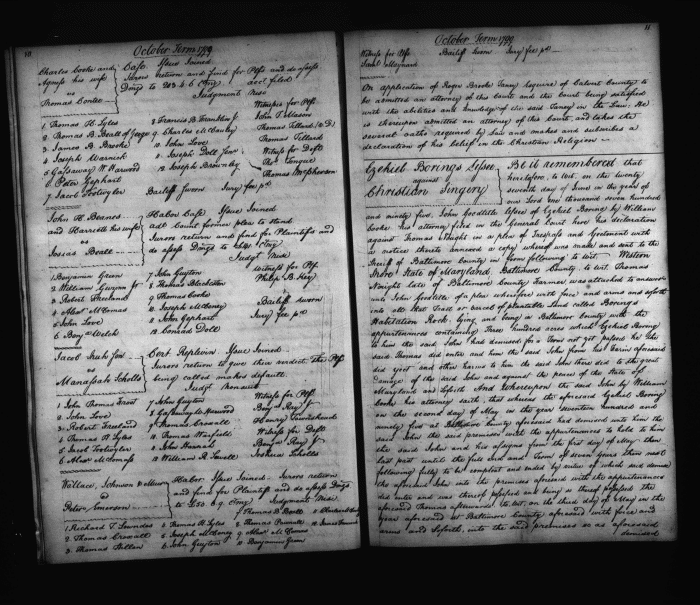 10
October Term 1799
Charles Cooke and
Agness his wife
vs
Thomas Contee
Case Issue Joined
Jurors return and find for Plffs and do assess
Damgs to
Judgment Nisi
1 Thomas H. Lyles
2 Thomas B. Beall of
3 James B. Brooke
4 Joseph Warnick
5 Gassaway W Harwood
6 Peter Gephart
7 Jacob Tootwyler
8 Francis B
9 Charles McCauley
10 John Love
11 Joseph Doll Junr
12 Joseph Brownley
Bailiff Sworn Jury fee pd
Witness for Plff
John T Mason
Thomas Tillard
Thomas Tillard
Witness for Deft
Tongue
Thomas McPherson
John H. Beanes
and Harriett his wife
vs
Josias Beall
Habor Case Issue Joined
adt Count former plea to stand
Jurors return and find for Plaintiffs and
do assess Damgs to
Judgt Nisi
1 Benjamin Green
2 William Guyton Jr
3 Robert Freeland
4
5 John Love
6 Benja Welch
7 John Guyton
8 Thomas Blackston
9 Thomas Cooke
10 Joseph McCeney
11 John Gephart
12 Conrad Doll
Witness for Plff
Philip B. Key
Bailiff sworn
Jury fee pd
Jacob
vs
Manassah Scholls
Cert Replevin Issue Joined
Jurors return to give their verdict the Plff
being called makes default
Judgt
1 John Thomas
2 John Love
3 Robert Freeland
4 Thomas H Lyles
5 Jacob Tootwyler
6
7 John Guyton
8 Gassaway W Harwood
9 Thomas Crowall
10 Thomas Warfield
11 John
12 William R.
Witness for Plff
Benjn Ray Jr
Henry
Witness for Deft
Benjn Ray Jr
Joshua Scholls
Wallace, Johnson &
vs
Peter Emerson
Habor Issue Joined Jurors return
and find for Plaintiff and do assess Damgs
to Judgment Nisi
1 Richard T. Lowndes
2 Thomas Crowall
3 Thomas Dillon
4 Thomas H. Lyles
5 Joseph McCeney
6 John Guyton
7 Thomas B Beall
8 Thomas
9
10 Benjamin Green
11
October Term 1799
Witness for Plff
Bailiff Sworn Jury fee pd
Maynard
On application of Roger Brooke Taney Esquire of Calvert County to
be admitted an attorney of this court and the Court being satisfied
with the abilities and knowledge of the said Taney in the Law. He
is thereupon admitted an attorney of this Court and takes the
several oaths required by Law and makes and subscribes a
declaration of his belief in the Christian Religion
Ezekiel Borings Lessee
against
Christian Singery
Be it remembered that
heretofore, to wit, on the twenty
seventh day of June in the year of
our Lord one thousand seven hundred
and ninety five, John Goodtitle Lessee of Ezekiel Boring by William
Cooke his attorney filed in the General Court here his declaration
against Thomas Nought in a plea of Trespass and Ejectment with
a notice thereto annexed a copy whereof was made and sent to the
Sheriff of Baltimore County in form following to wit. Western
Shore State of Maryland, Baltimore County to wit. Thomas
Nought late of Baltimore County Farmer was attached to answer
unto John Goodtitle of a plea wherefore with force and arms and so forth
into all that Tract or parcel of plantable Land called Borings
Habitation Rock, lying and being in Baltimore County with the
appurtenances containing Three hundred acres which Ezekiel Boring
to him the said John had demised for a Term not yet passed he the
said Thomas did enter and him the said John from his Farm aforesaid
did eject and other harms to him the said John there did to the great
damage of the said John and against the peace of the State of
Maryland and soforth And Whereupon the said John by William
Cooke his attorney saith, that whereas the aforesaid Ezekiel Boring
on the second day of May in the year seventeen hundred and
ninety five at Baltimore County aforesaid had demised unto him the
said John the said premises with the appurtenances to hold to him
the said John and his assigns from the first day of May then
last past until the full End and Term of seven years then next
following fully to be compleat and ended by virtue of which said demise
the aforesaid John into the premises aforesaid with the appurtenances
did enter and was thereof possessed and being so thereof possessed the
aforesaid Thomas afterwards to wit on the third day of May in the
year aforesaid at Baltimore County aforesaid with force and
arms and soforth into the said premises so as aforesaid
demised